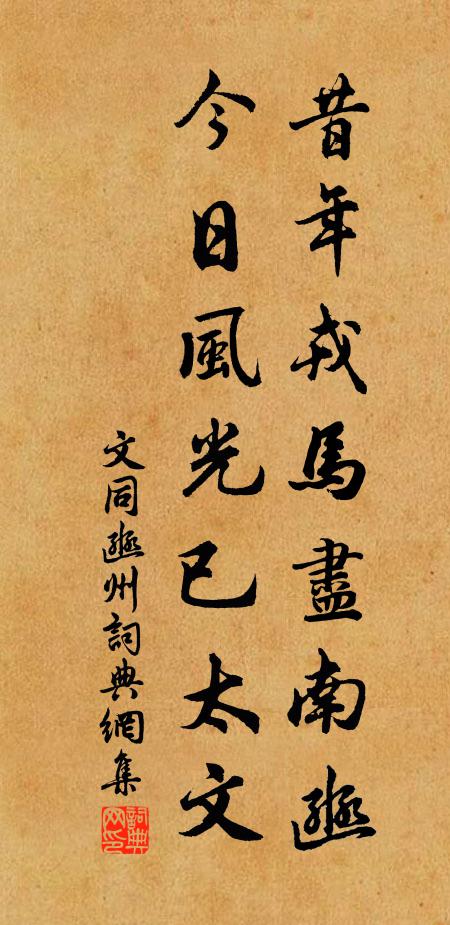 昔年戎馬盡南邊
今日風光已太文
文同邊州詞典網集
詞典
网印